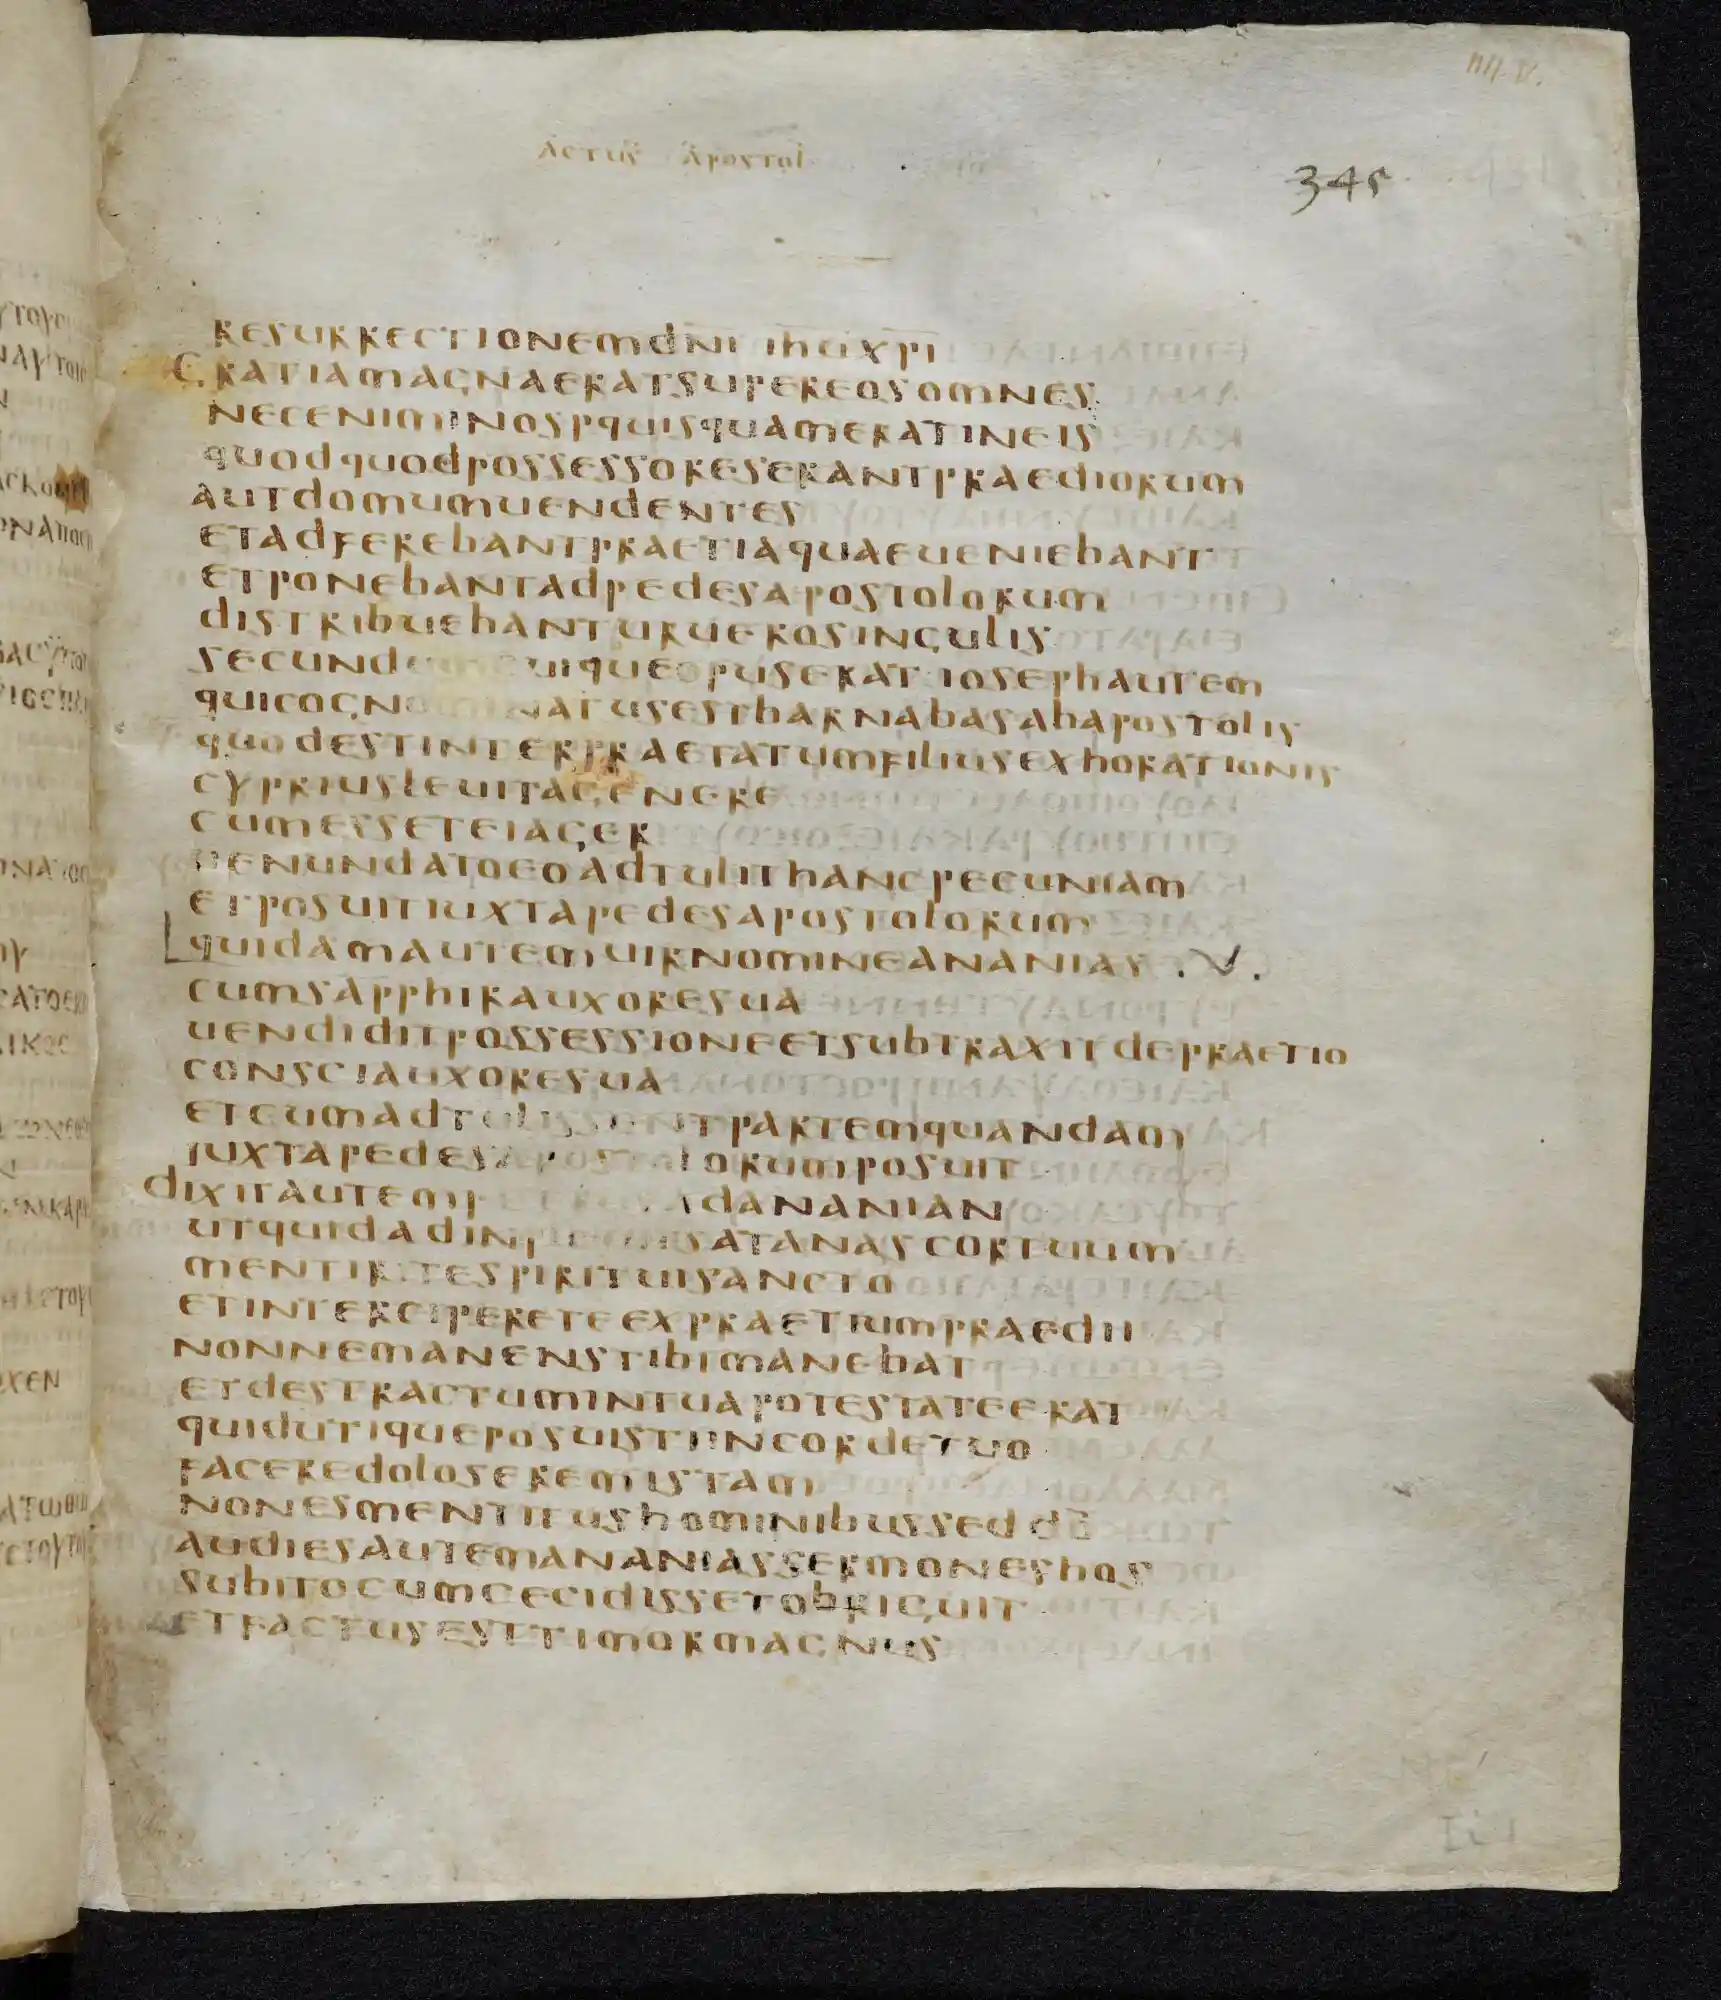 ACTUS APOSTOL
345
RESURRECTIONEMDNI IHUXPI
GRATIAMAGNAERATSUPEREOSOMNES
NECENIMINOSPQUISQUAMERATINEIS
QUODQUODPOSSESSORESERANTPRAEDIORUM
AUTDOMUMUENDENTES
ETADFEREBANTPRAETIAQUAEUENIEBANT
ETPONEBANTADPEDESAPOSTOLORUM
DISTRIBUEBANTURUEROSINGULIS
SECUNDUM CUIQUEOPUSERAT IOSEPHAUTEM
QUICOGNOMINATUSESTBARNABASABAPOSTOLIS
QUODESTINTERPRAETATUMFILIUSEXHORATIONIS
CYPRIUSLEUITAGENERE
CUMESSETEIAGER
UENUNDATOEOADTULITHANCPECUNIAM
ETPOSUITIUXTAPEDESAPOSTOLORUM
QUIDAMAUTEMUIRNOMINEANANIAS .V.
CUMSAPPHIRAUXORESUA
UENDIDITPOSSESSIONEETSUBTRAXITDEPRAETIO
CONSCIAUXORESUA
ETCUMADTULISSENTPARTEMQUANDAM
IUXTAPEDESAPOSTOLORUMPOSUIT
DIXITAUTEMPETRUSADANANIAN
UTQUIDADINPLEUITSATANASCORTUUM
MENTIRITESPIRITUISANCTO
ETINTERCIPERETEEXPRAETIUMPRAEDII
NONNEMANENSTIBIMANEBAT
ETDESTRACTUMINTUAPOTESTATEERAT
QUIDUTIQUEPOSUISTIINCORDETUO
FACEREDOLOSEREMISTAM
NONESMENTITUSHOMINIBUSSEDDO
AUDIESAUTEMANANIASSERMONESHOS
SUBITOCUMCECIDISSETOBRIGUIT
ETFACTUSESTTIMORMAGNUS